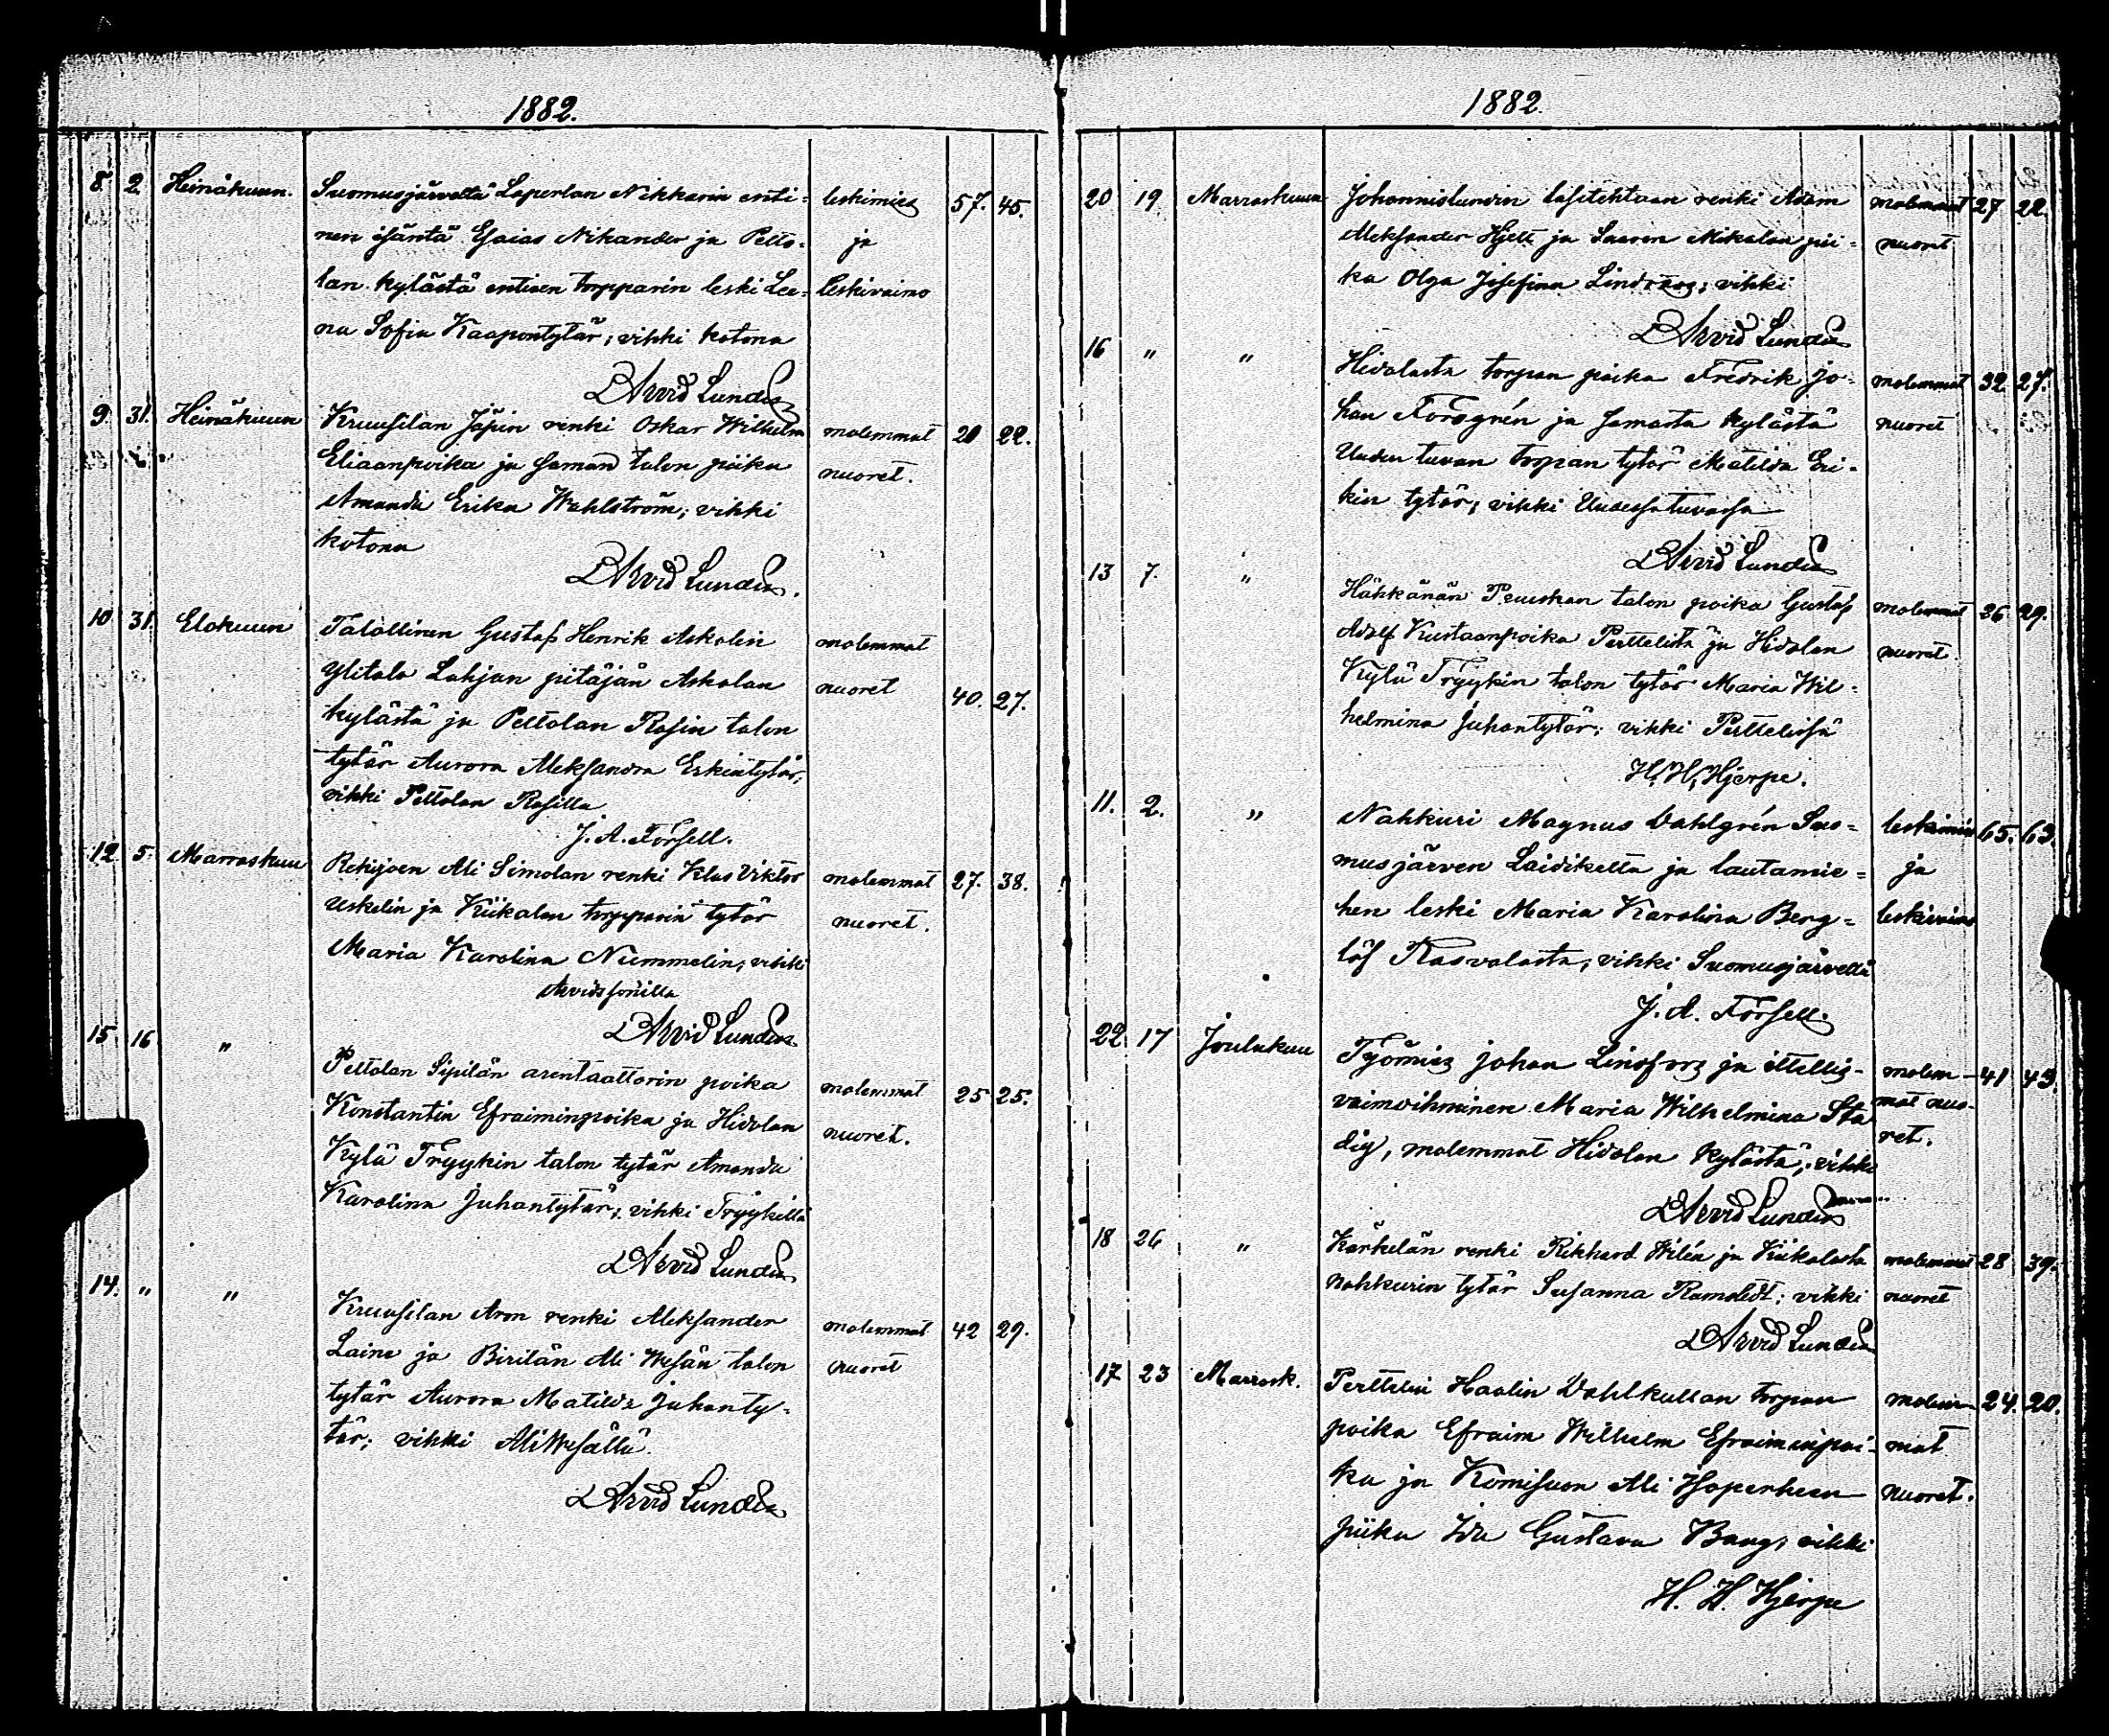 1882.
8. 2 Heinäkuun. Suomusjärveltä Laperlan Nikkarin enti- leskimies 57. 45.
nen isäntä Esaias Nikander ja Petto- ja
lan kylästä entisen torpparin leski Lee- leskivaimo
na Sofia Kaapontytär; vihki kotona
Arvid Lundén
9. 31. Heinäkuun Kruusilan Jäpin renki Oskar Wilhelm molemmat 20 22.
Eliaanpoika ja saman talon piika nuoret.
Amanda Erika Wahlström; vihki
kotona
Arvid Lundén.
10 31. Elokuun Talollinen Gustaf Henrik Askolin molemmat
Ylitalo Lohjan pitäjän Askolan nuoret 40. 27.
kylästä ja Pettolan Rosin talon
tytär Aurora Aleksandra Erkintytär;
vihki Pettolan Rosilla
J. A. Forsell.
12 5. Marraskuu Rekijoen Ali Simolan renki Klas Viktor molemmat 27. 38.
Uskelin ja Kiikalan torpparin tytär nuoret.
Maria Karolina Nummelin; vihki
Arvidssonilla
Arvid Lundén
15. 16 " Pettolan Sipilän arentaattorin poika molemmat 25 25.
Konstantin Efraiminpoika ja Hidolan nuoret.
Kylä Tryykin talon tytär Amanda
Karolina Juhantytär; vihki Tryykillä
Arvid Lundén
14. " " Kruusilan Aron renki Aleksander molemmat 42 29.
Laine ja Birilän Ali Wesän talon nuoret
tytär Aurora Matilda Juhanty-
tär; vihki AliWesällä.
Arvid Lundén
1882.
20 19 Marraskuun Johannislundin lasitehtaan renki Adam molemmat 27 22.
Aleksander Hjelt ja Saaren Mikolan pii- nuoret
ka Olga Josefina Lindroos; vihki
Arvid Lundén
16 " " Hidolasta torpan poika Fredrik Jo- molemmat 32 27.
han Forsgrén ja samasta kylästä nuoret
Uuden tuvan torpan tytär Matilda Eri-
kin tytär; vihki Uudessatuvassa
Arvid Lundén
13 7. " Hähkänän Peuskan talon poika Gustaf molemmat 26 29.
Adolf Kustaanpoika Perttelistä ja Hidolan nuoret.
Kylä Tryykin talon tytär Maria Wil-
helmina Juhantytär; vihki Perttelissä
H. H. Hjerpe.
11. 2. " Nahkuri Magnus Dahlgrén Suo- leskimies 65. 63.
musjärven Laidikelta ja lautamie- ja
hen leski Maria Karolina Berg- leskivaimo
löf Rasvalasta; vihki Suomusjärvellä
J. A. Forsell.
22 17 Joulukuu Työmies Johan Lindfors ja itsellis- molem- 41 43.
vaimoihminen Maria Wilhelmina Sta mat nuo-
dig, molemmat Hidolan kylästä; vihki ret.
Arvid Lundén
18 26 " Kärkelän renki Rikhard Wilén ja Kiikalasta molemmat 28 39.
nahkurin tytär Susanna Ramstedt; vihki nuoret
Arvid Lundén
17 23 Marrask. Perttelin Haalin Dahlkullan torpan molem- 24. 20.
poika Efraim Wilhelm Efraiminpoi- mat
ka ja Komisuon Ali Isoperheen nuoret.
piika Ida Gustava Bang; vihki
H. H. Hjerpe